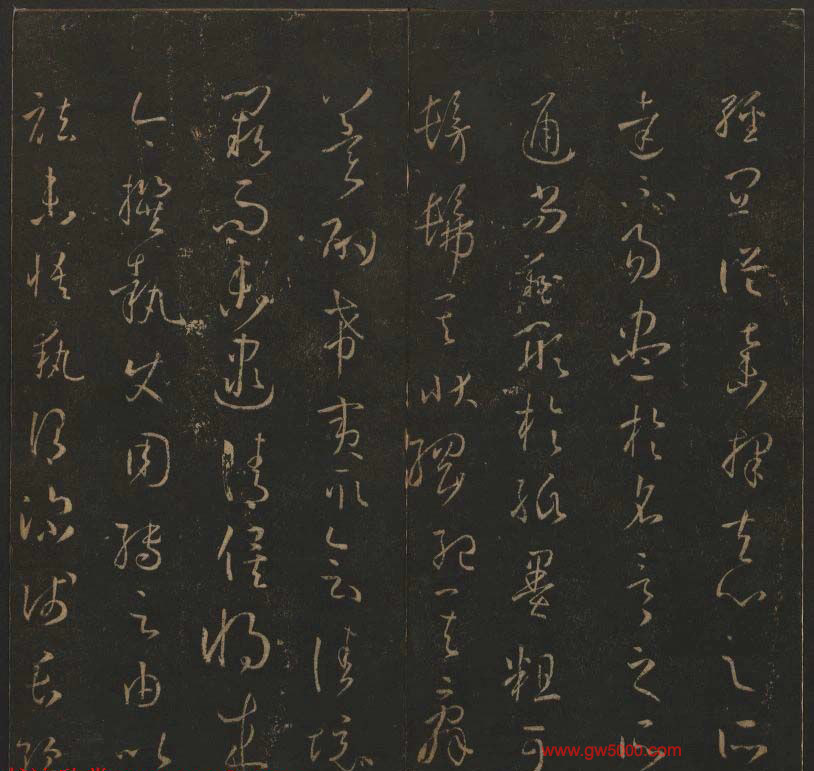 經宜從棄擇夫心之所
達不易盡於名言言之所
通尚難形於紙墨粗可
髣髴其狀綱紀其辭
冀酌希夷取會佳境
闕而未逮請俟將來
今撰執使用轉之由以
祛未悟執謂深淺長短
www.gw5000.com